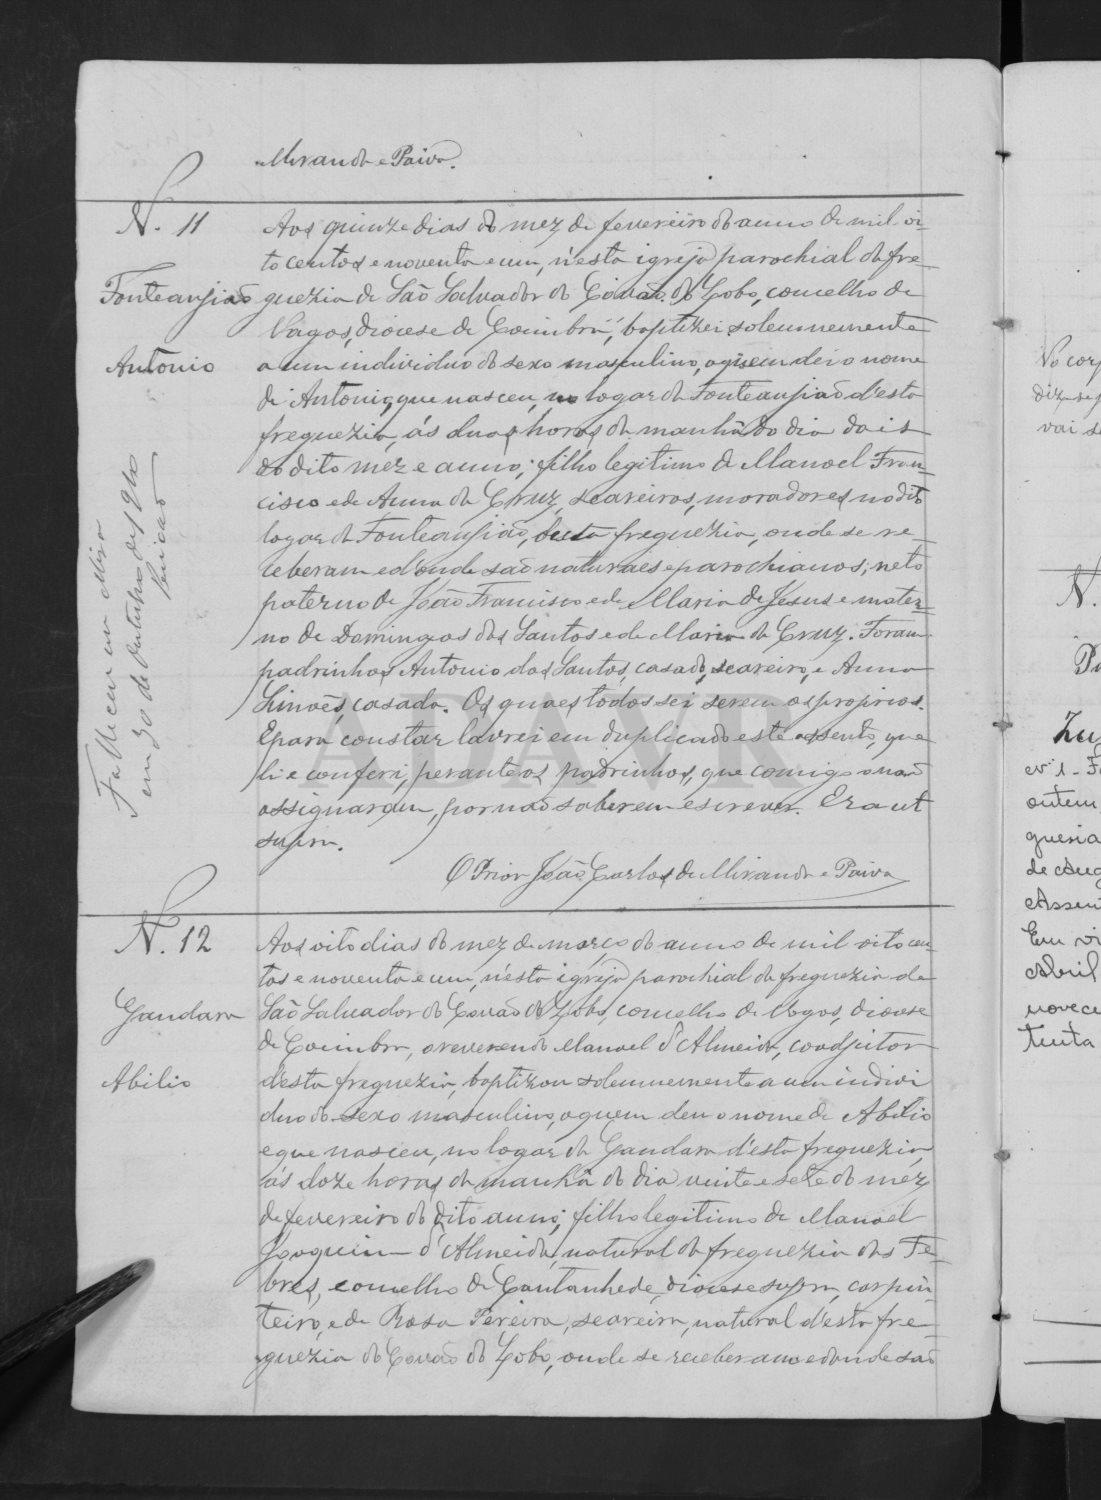 Miranda e Paiva.
N. 11
Fonteanjião
Antonio
Falleceu em Mira
em 30 de outubro de 1960
Aos quinze dias do mez de fevereiro do anno de mil oi-
to centos e noventa e um, n'esta igreja parochial da fre-
guezia de São Salvador do Covão do Lobo, concelho de
Vagos, diocese de Coimbra, baptizei solemnemente
a um individuo do sexo masculino, a quem dei o nome
de Antonio, que nasceu, no logar da Fonteanjião d'esta
freguezia, ás duas horas da manhã do dia dois
do dito mez e anno; filho legitimo de Manoel Fran-
cisco e de Anna da Cruz, seareiros, moradores no dito
logar da Fonteanjião, desta freguezia, onde se re-
ceberam e d'onde são naturaes e parochianos; neto
paterno de João Francisco e de Maria de Jesus e mater-
no de Domingos dos Santos e de Maria da Cruz. Foram
padrinhos Antonio dos Santos, casado, seareiro, e Anna
Simões, casada. Os quaes todos sei serem os proprios.
E para constar lavrei em duplicado este assento, que
li e conferi, perante os padrinhos, que comigo o não
assignaram, por não saberem escrever. Era ut
supra.
O Prior João Carlos de Miranda e Paiva
N. 12
Gandara
Abilio
Aos oito dias do mez de março do anno de mil oito cen-
tos e noventa e um, n'esta igreja parochial da freguezia de
São Salvador do Covão do Lobo, concelho de Vagos, diocese
de Coimbra, o reverendo Manoel d'Almeida, coadjutor
d'esta freguezia, baptizou solemnemente a um indivi
duo do sexo masculino, a quem deu o nome de Abilio
e que nasceu, no logar da Gandara d'esta freguezia,
ás doze horas da manhã do dia vinte e sete do mez
de fevereiro do dito anno; filho legitimo de Manoel
Joaquim d'Almeida, natural da freguezia das Fe-
bres, concelho de Cantanhede, diocese supra, carpin-
teiro, e de Rosa Pereira, seareira, natural d'esta fre-
guezia do Covão do Lobo, onde se receberam e donde são
ADAVR
No corp
vai se
N.
ontem
de Aug
Assen
Em vi
Abril
novece